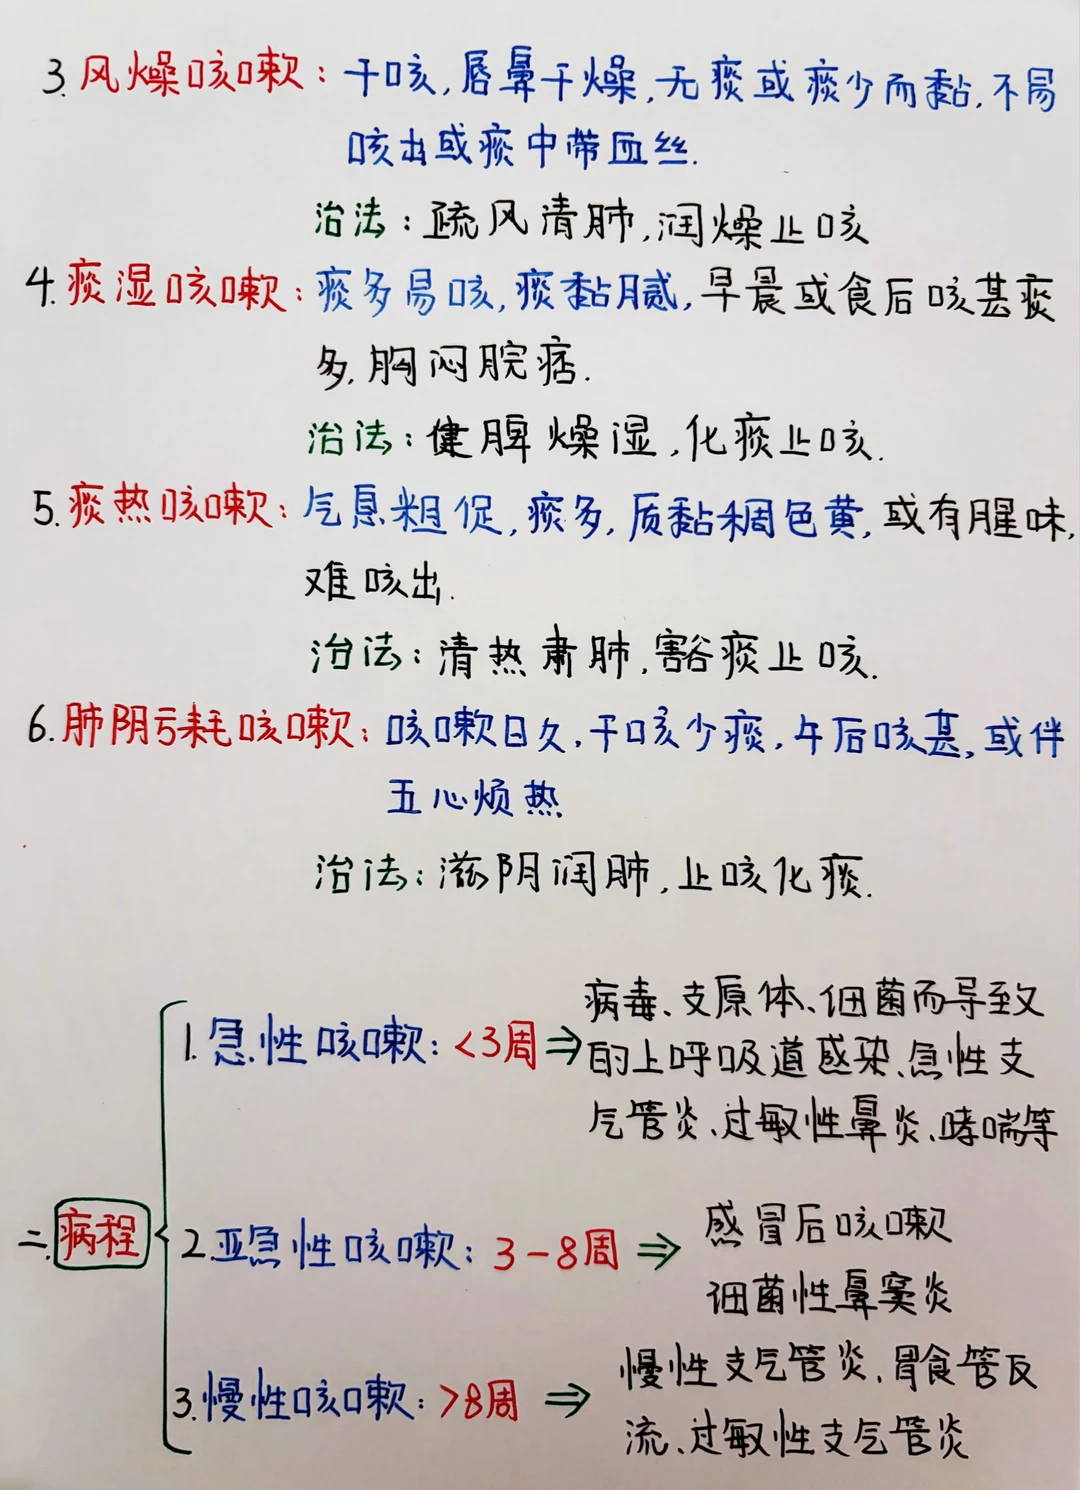 3.风燥咳嗽：干咳,唇鼻干燥,无痰或痰少而黏,不易
咳出或痰中带血丝.
治法：疏风清肺,润燥止咳
4.痰湿咳嗽：痰多易咳,痰黏腻,早晨或食后咳甚痰
多,胸闷脘痞.
治法：健脾燥湿,化痰止咳.
5.痰热咳嗽：气息粗促,痰多,质黏稠色黄,或有腥味,
难咳出.
治法：清热肃肺,豁痰止咳.
6.肺阴亏耗咳嗽：咳嗽日久,干咳少痰,午后咳甚,或伴
五心烦热
治法：滋阴润肺,止咳化痰.
二.病程
1.急性咳嗽：<3周⇒病毒、支原体、细菌而导致
的上呼吸道感染、急性支
气管炎、过敏性鼻炎、哮喘等
2.亚急性咳嗽：3-8周⇒感冒后咳嗽
细菌性鼻窦炎
3.慢性咳嗽：>8周⇒慢性支气管炎、胃食管反
流、过敏性支气管炎